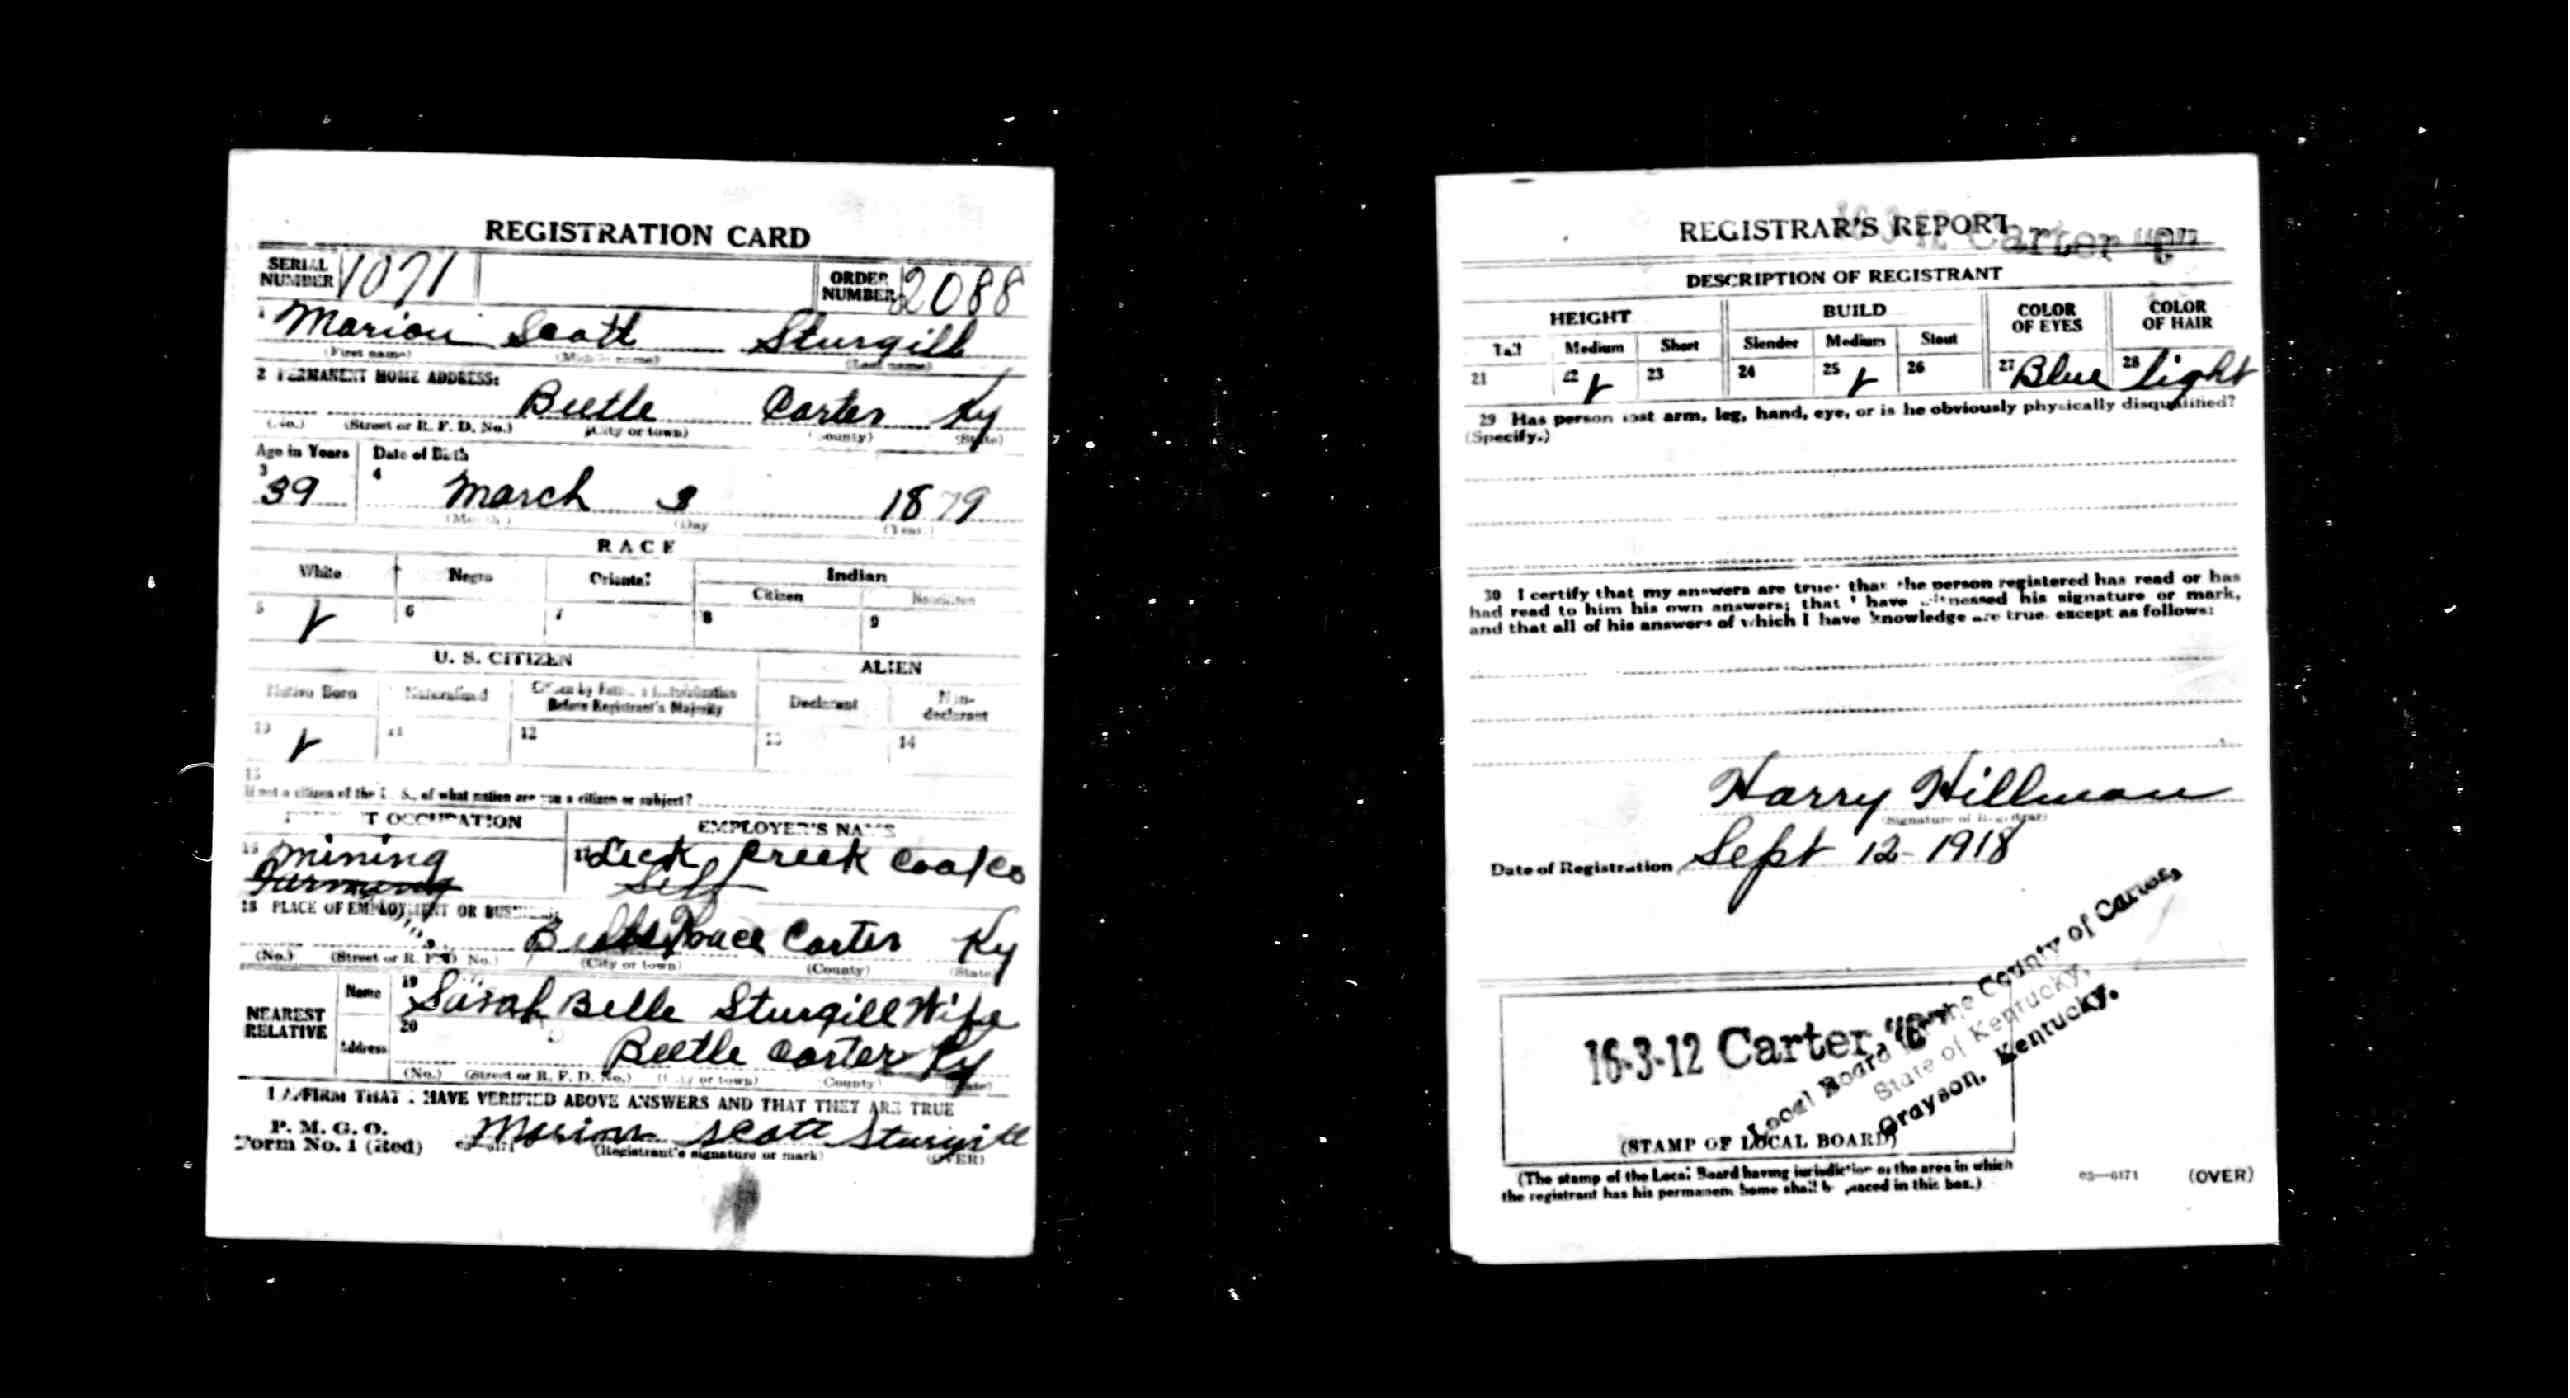 REGISTRATION CARD
SERIAL NUMBER 1071 ORDER NUMBER 2088
1 Marion Scott Sturgill
(First name) (Middle name) (Last name)
2 PERMANENT HOME ADDRESS:
Beetle Carter Ky
(No.) (Street or R. F. D. No.) (City or town) (County) (State)
Age in Years Date of Birth
3 39 4 March 3 1879
(Month) (Day) (Year)
RACE
White Negro Oriental Indian
Citizen Noncitizen
5 6 7 8 9
U. S. CITIZEN ALIEN
Native Born Naturalized Citizen by Father's Naturalization Before Registrant's Majority Declarant Non-declarant
10 11 12 13 14
15
If not a citizen of the U. S., of what nation are you a citizen or subject?
PRESENT OCCUPATION EMPLOYER'S NAME
16 Mining 17 Lick Creek Coal Co
Farming Self
18 PLACE OF EMPLOYMENT OR BUSINESS:
Carter Ky
(No.) (Street or R. F. D. No.) (City or town) (County) (State)
NEAREST RELATIVE Name 19 Sarah Belle Sturgill Wife
Address 20 Beetle Carter Ky
(No.) (Street or R. F. D. No.) (City or town) (County) (State)
I AFFIRM THAT I HAVE VERIFIED ABOVE ANSWERS AND THAT THEY ARE TRUE
P. M. G. O.
Form No. 1 (Red) 03—6171 Marion Scott Sturgill
(Registrant's signature or mark) (OVER)
REGISTRAR'S REPORT
16-3-12 Carter "C"
DESCRIPTION OF REGISTRANT
HEIGHT BUILD COLOR OF EYES COLOR OF HAIR
Tall Medium Short Slender Medium Stout
21 22 23 24 25 26 27 Blue 28 light
29 Has person lost arm, leg, hand, eye, or is he obviously physically disqualified?
(Specify.)
30 I certify that my answers are true; that the person registered has read or has
had read to him his own answers; that I have witnessed his signature or mark,
and that all of his answers of which I have knowledge are true, except as follows:
Harry Hillman
(Signature of Registrar)
Date of Registration Sept 12-1918
16-3-12 Carter "C"
Local Board for the County of Carter,
State of Kentucky,
Grayson, Kentucky.
(STAMP OF LOCAL BOARD)
(The stamp of the Local Board having jurisdiction of the area in which
the registrant has his permanent home shall be placed in this box.)
03—6171 (OVER)